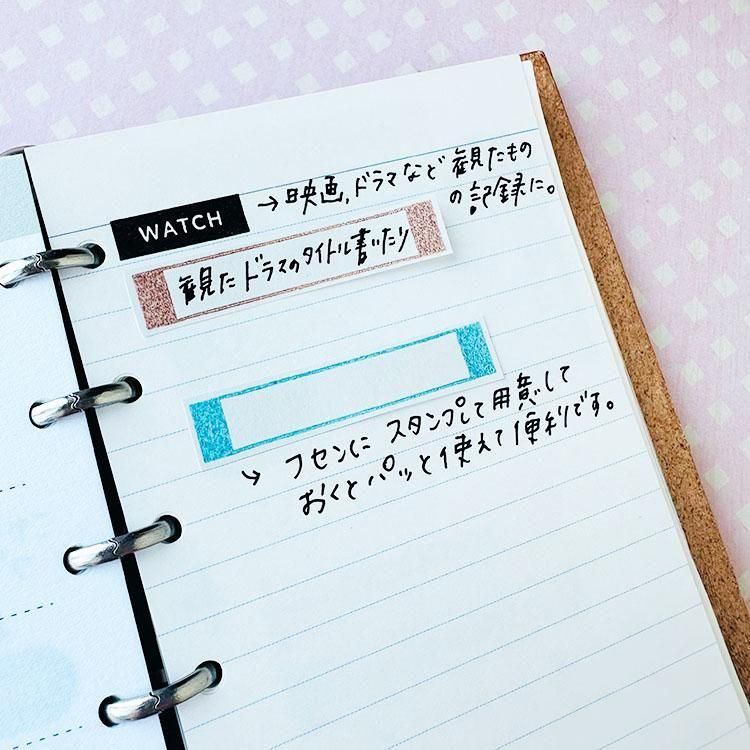 WATCH
→映画,ドラマなど観たもの
の記録に。
観たドラマのタイトル書いたり
→ フセンに スタンプして用意して
おくとパッと使えて便利です。